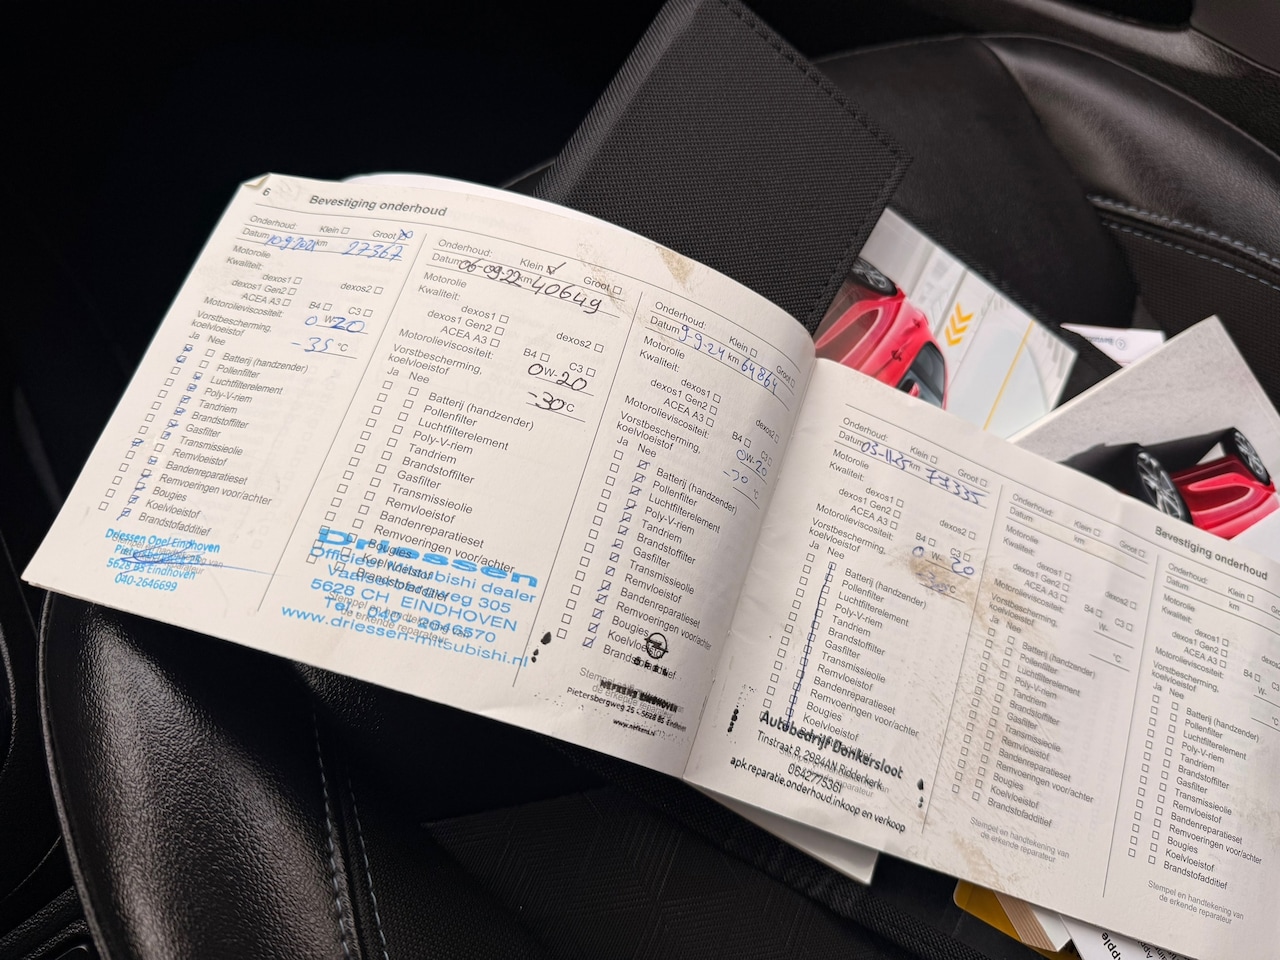 6
Bevestiging onderhoud
Onderhoud: Klein Groot
Datum 10-9-2021 km 27367
Motorolie
Kwaliteit:
dexos1 dexos2
dexos1 Gen2
ACEA A3 B4 C3
Motorolieviscositeit: 0 W- 20
Vorstbescherming,
koelvloeistof -35 °C
Ja Nee
Batterij (handzender)
Pollenfilter
Luchtfilterelement
Poly-V-riem
Tandriem
Brandstoffilter
Gasfilter
Transmissieolie
Remvloeistof
Bandenreparatieset
Remvoeringen voor/achter
Bougies
Koelvloeistof
Brandstofadditief
Driessen Opel Eindhoven
5628 BS Eindhoven
040-2646699
Onderhoud: Klein Groot
Datum 06-09-22 km 40649
Motorolie
Kwaliteit:
dexos1 dexos2
dexos1 Gen2
ACEA A3 B4 C3
Motorolieviscositeit: 0 W- 20
Vorstbescherming,
koelvloeistof -30 °C
Ja Nee
Batterij (handzender)
Pollenfilter
Luchtfilterelement
Poly-V-riem
Tandriem
Brandstoffilter
Gasfilter
Transmissieolie
Remvloeistof
Bandenreparatieset
Remvoeringen voor/achter
Bougies
Koelvloeistof
Brandstofadditief
Driessen
Officieel Mitsubishi dealer
5628 CH EINDHOVEN
www.driessen-mitsubishi.nl
Onderhoud: Klein Groot
Datum 9-9-24 km 64864
Motorolie
Kwaliteit:
dexos1 dexos2
dexos1 Gen2
ACEA A3 B4 C3
Motorolieviscositeit: 0 W- 20
Vorstbescherming,
koelvloeistof -30 °C
Ja Nee
Batterij (handzender)
Pollenfilter
Luchtfilterelement
Poly-V-riem
Tandriem
Brandstoffilter
Gasfilter
Transmissieolie
Remvloeistof
Bandenreparatieset
Remvoeringen voor/achter
Bougies
Koelvloeistof
Brandstofadditief
OPEL
NEFKENS EINDHOVEN
Pietersbergweg 25 - 5628 BS Eindhoven
www.nefkens.nl
Onderhoud: Klein Groot
Datum 03-11-25 km 77335
Motorolie
Kwaliteit:
dexos1 dexos2
dexos1 Gen2
ACEA A3 B4 C3
Motorolieviscositeit: 0 W- 20
Vorstbescherming,
koelvloeistof -30 °C
Ja Nee
Batterij (handzender)
Pollenfilter
Luchtfilterelement
Poly-V-riem
Tandriem
Brandstoffilter
Gasfilter
Transmissieolie
Remvloeistof
Bandenreparatieset
Remvoeringen voor/achter
Bougies
Koelvloeistof
Autobedrijf Donkersloot
Tinstraat 8, 2984AN Ridderkerk
0642775361
apk.reparatie.onderhoud.inkoop en verkoop
Onderhoud: Klein Groot
Datum km
Motorolie
Kwaliteit:
dexos1 dexos2
dexos1 Gen2
ACEA A3 B4 C3
Motorolieviscositeit: W-
Vorstbescherming,
koelvloeistof °C
Ja Nee
Batterij (handzender)
Pollenfilter
Luchtfilterelement
Poly-V-riem
Tandriem
Brandstoffilter
Gasfilter
Transmissieolie
Remvloeistof
Bandenreparatieset
Remvoeringen voor/achter
Bougies
Koelvloeistof
Brandstofadditief
Stempel en handtekening van
de erkende reparateur
Bevestiging onderhoud
Onderhoud: Klein
Datum km
Motorolie
Kwaliteit:
dexos1
dexos1 Gen2
ACEA A3 B4
Motorolieviscositeit: W-
Vorstbescherming,
koelvloeistof
Ja Nee
Batterij (handzender)
Pollenfilter
Luchtfilterelement
Poly-V-riem
Tandriem
Brandstoffilter
Gasfilter
Transmissieolie
Remvloeistof
Bandenreparatieset
Remvoeringen voor/achter
Bougies
Koelvloeistof
Brandstofadditief
Stempel en handtekening van
de erkende reparateur